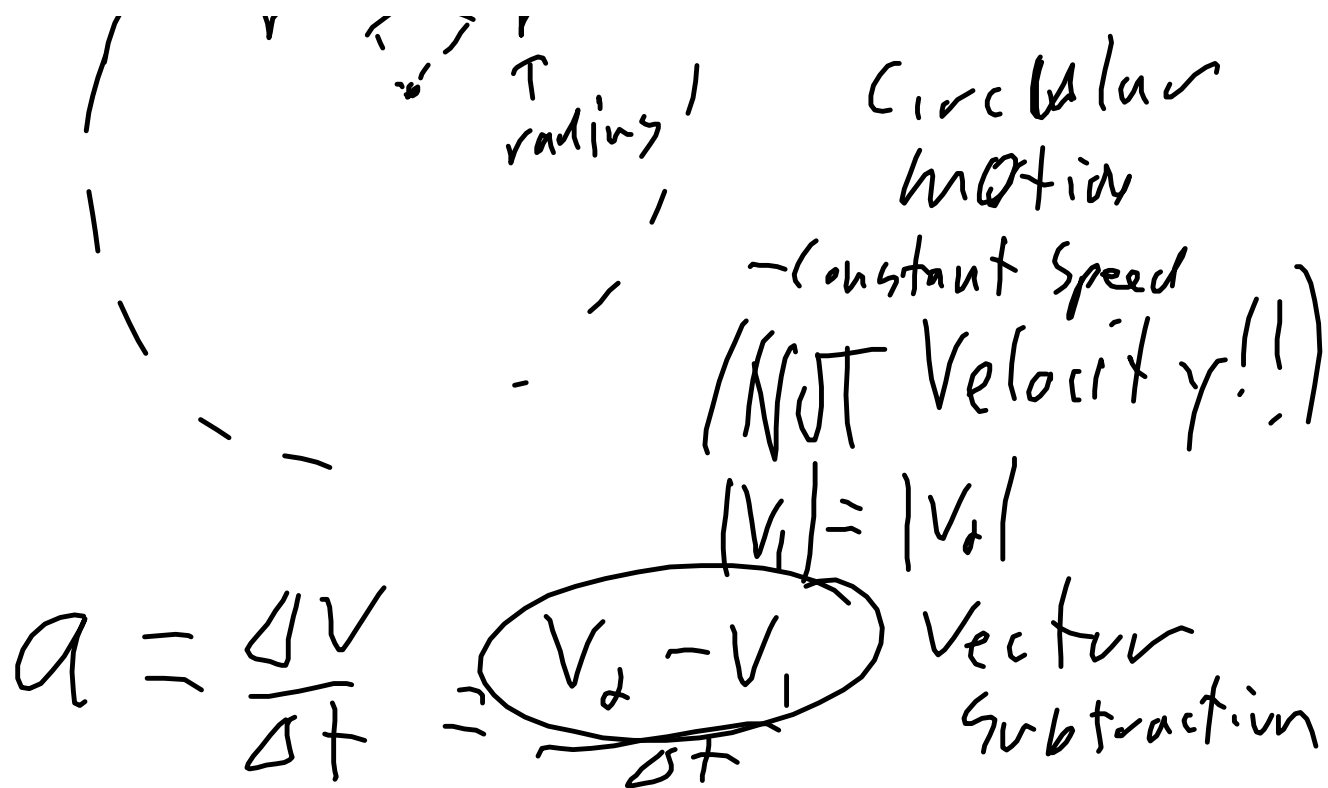 r
radius
Circular
motion
- Constant Speed
(NOT Velocity!!)
|V₁| = |V₂|
a = ΔV/Δt = (V₂ - V₁)/Δt
Vector
Subtraction